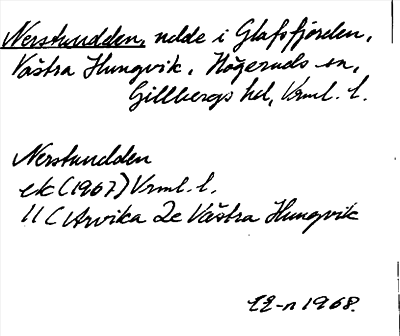 Nerstundden, udde i Glafsfjorden,
Västra Hungvik, Högeruds sn,
Gillbergs hd, Vrml. l.
Nerstundden
ek (1967) Vrml. l.
11 C Arvika 2c Västra Hungvik
1968.